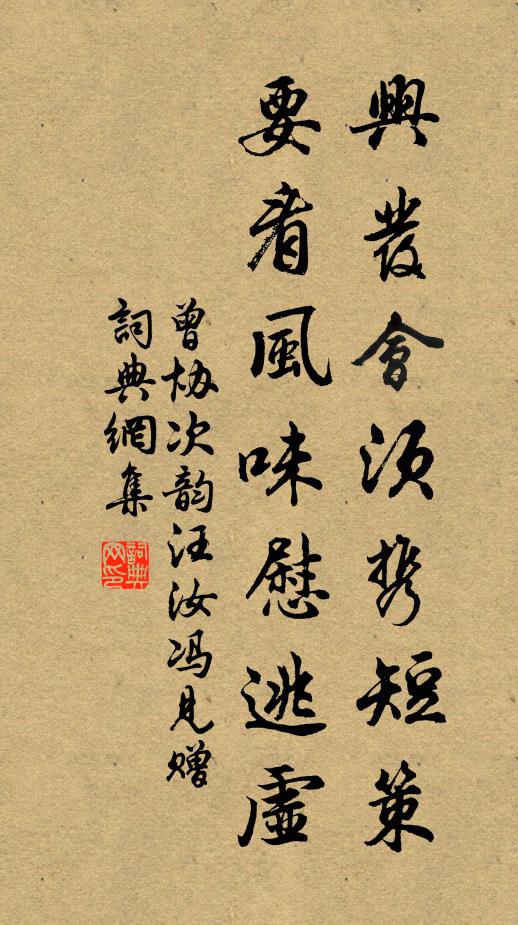 興發會須携短策
要看風味慰逃虛
曾协次韵汪汝冯见赠
詞典網集
詞典網印